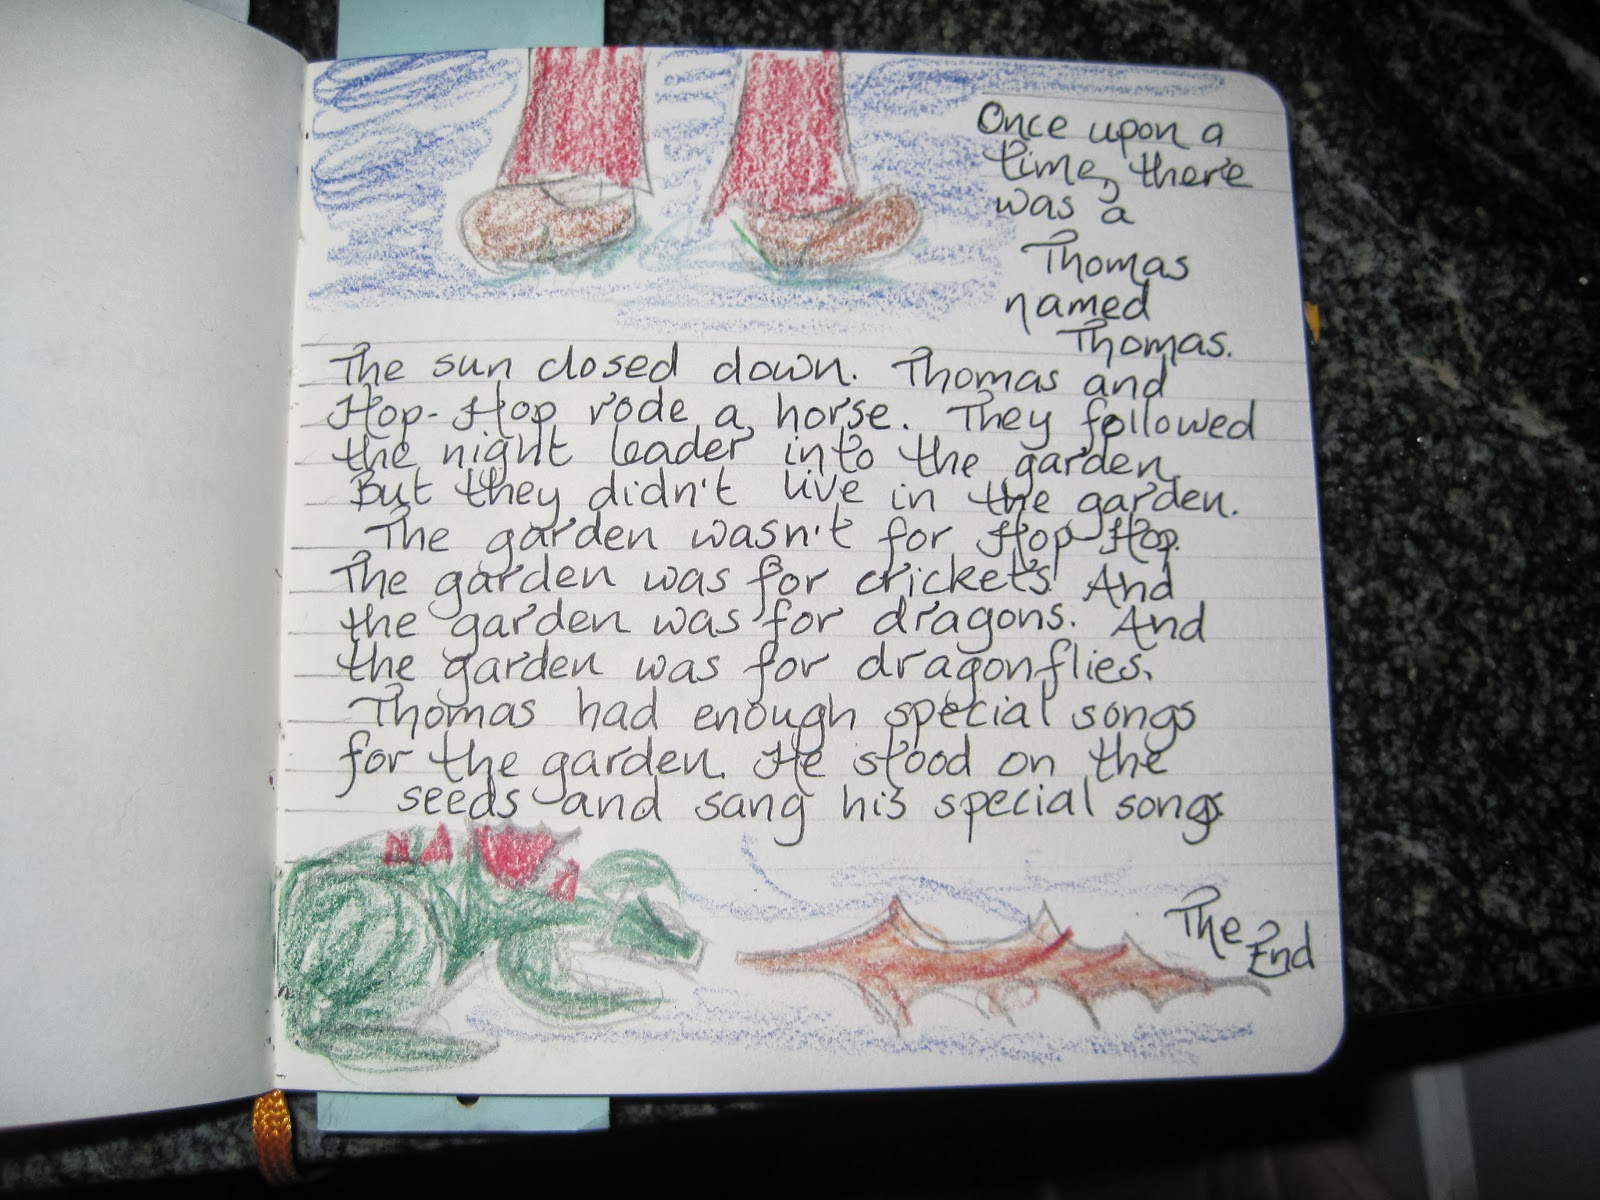 Once upon a
time, there
was a
Thomas
named
Thomas.
The sun closed down. Thomas and
Hop-Hop rode a horse. They followed
the night leader into the garden.
But they didn't live in the garden.
The garden wasn't for Hop-Hop.
The garden was for crickets. And
the garden was for dragons. And
the garden was for dragonflies.
Thomas had enough special songs
for the garden. He stood on the
seeds and sang his special songs.
The
End